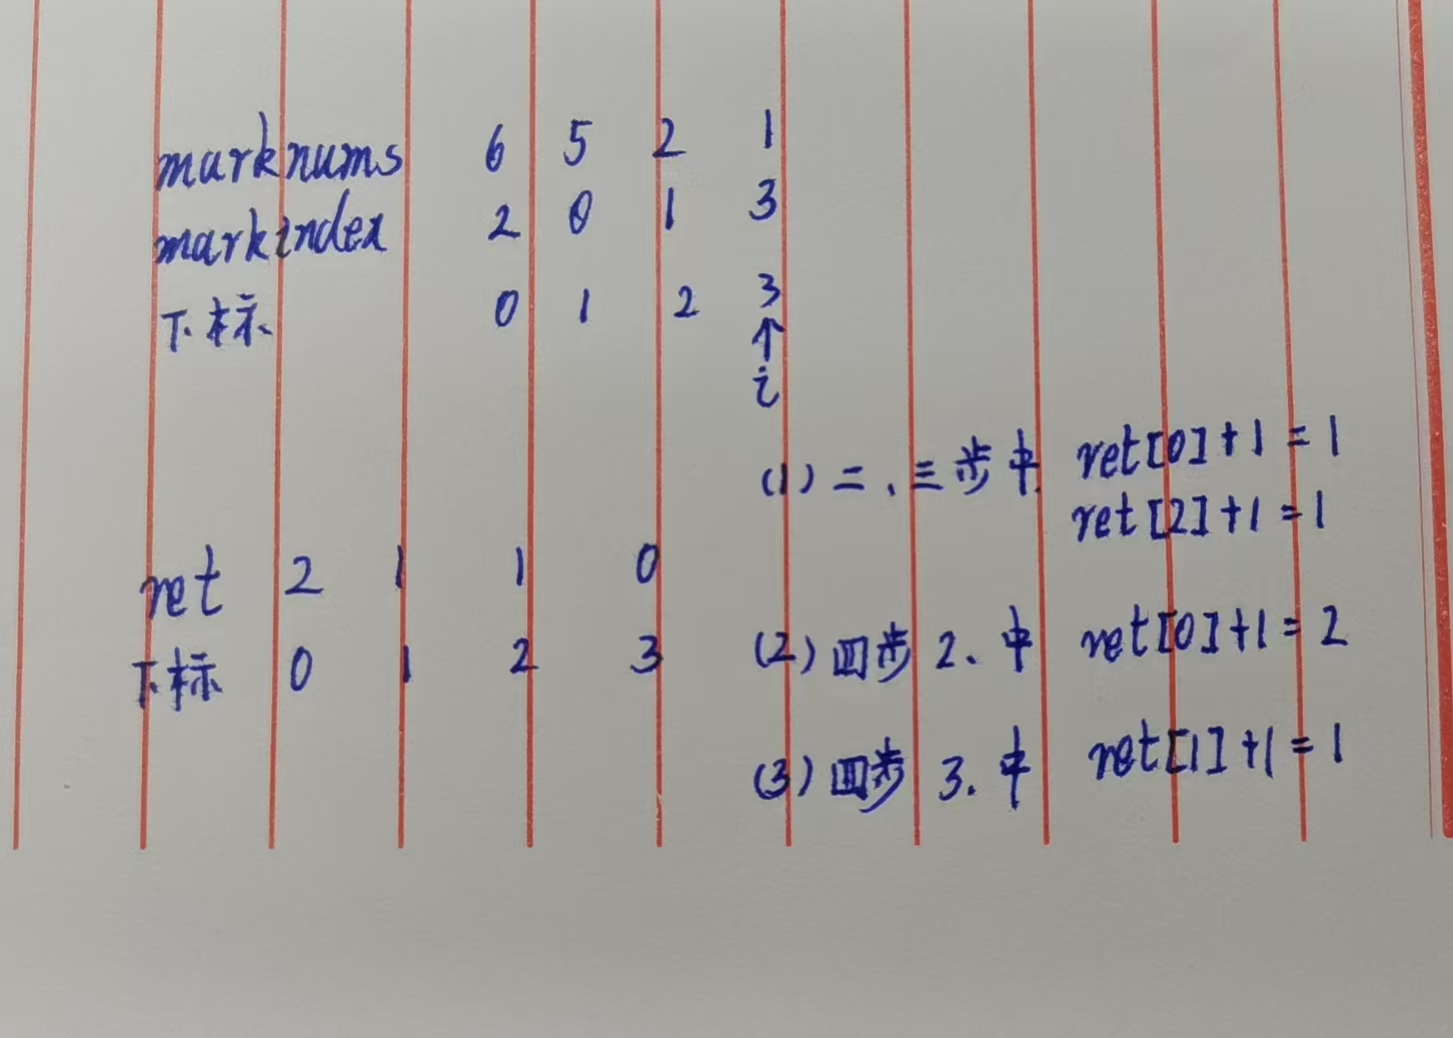 marknums 6 5 2 1
markindex 2 0 1 3
下标 0 1 2 3
↑
i
(1) 二、三步中 ret[0]+1=1
ret[2]+1=1
ret 2 1 1 0
下标 0 1 2 3
(2) 四步 2、中 ret[0]+1=2
(3) 四步 3.中 ret[1]+1=1